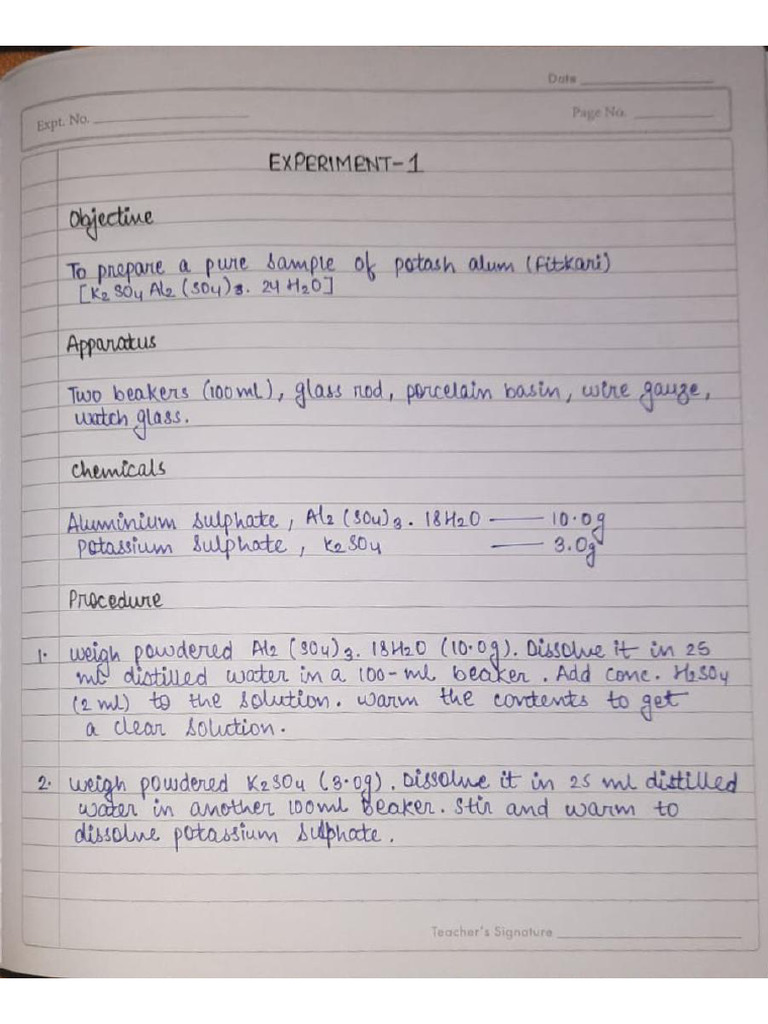 Date
Expt. No.
Page No.
EXPERIMENT-1
Objective
To prepare a pure sample of potash alum (Fitkari)
[K2SO4 Al2(SO4)3. 24H2O]
Apparatus
Two beakers (100ml), glass rod, porcelain basin, wire gauze,
watch glass.
Chemicals
Aluminium sulphate, Al2(SO4)3. 18H2O — 10.0g
Potassium sulphate, K2SO4 — 3.0g
Procedure
1. Weigh powdered Al2(SO4)3. 18H2O (10.0g). Dissolve it in 25
ml distilled water in a 100-ml beaker. Add conc. H2SO4
(2 ml) to the solution. Warm the contents to get
a clear solution.
2. Weigh powdered K2SO4 (3.0g). Dissolve it in 25 ml distilled
water in another 100ml beaker. Stir and warm to
dissolve potassium sulphate.
Teacher's Signature